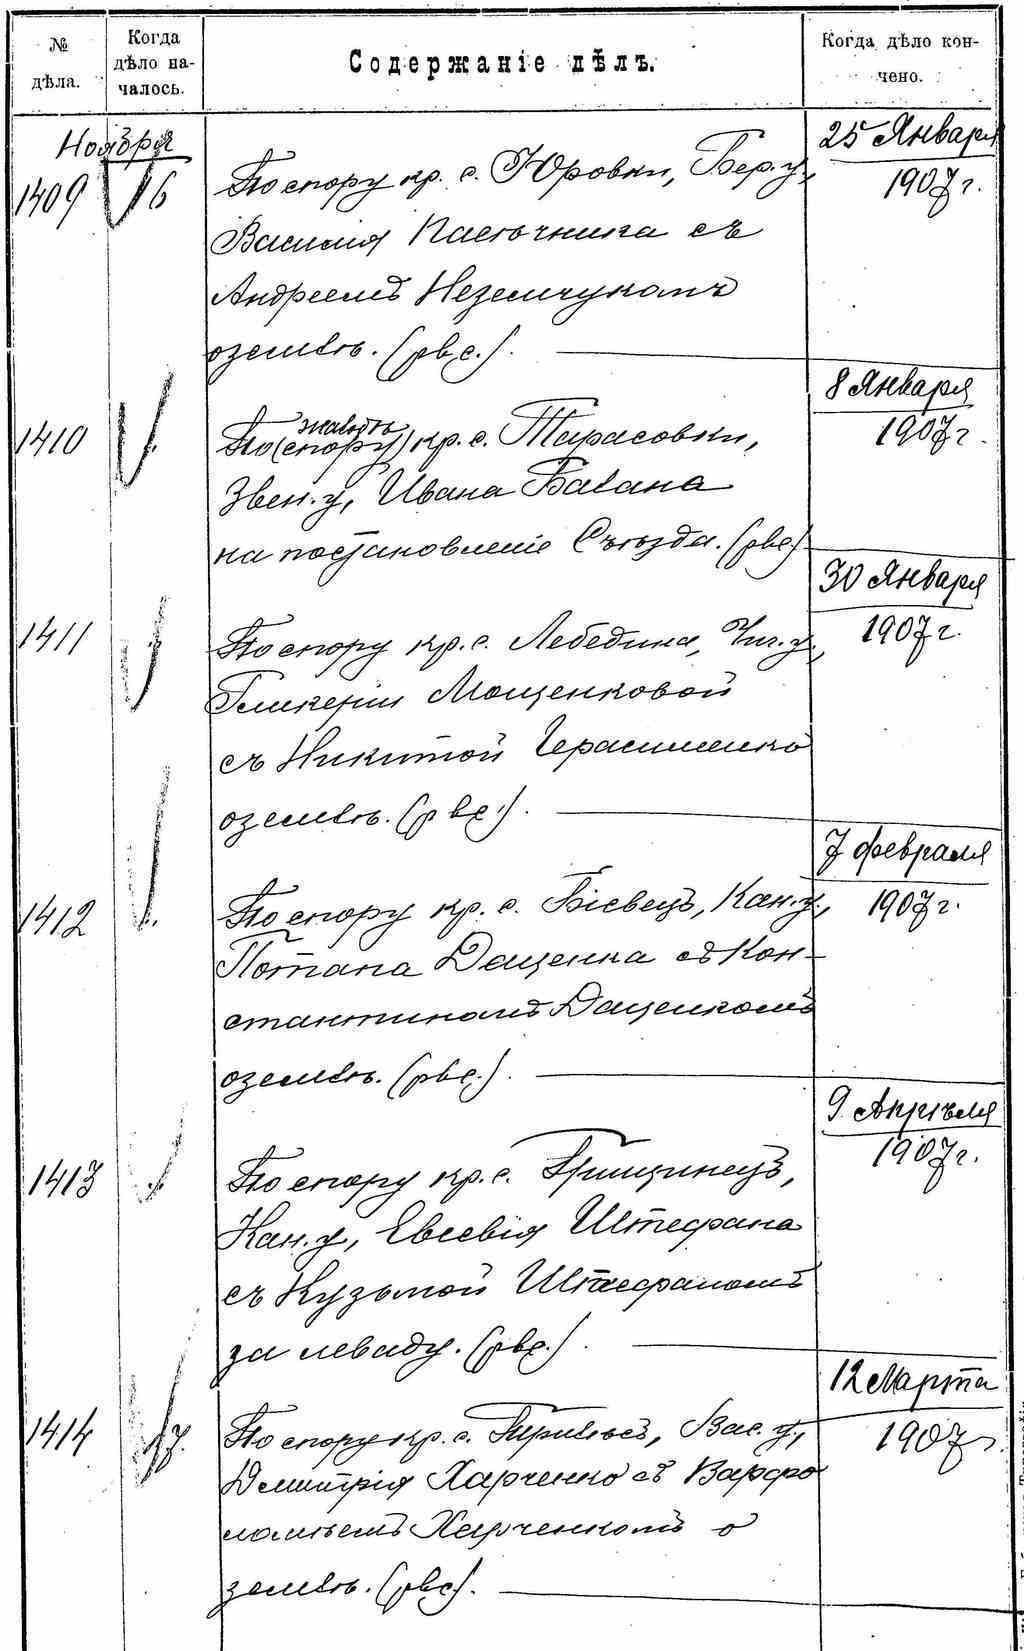 № дѣла.
Когда дѣло на-
чалось.
Содержаніе дѣлъ.
Когда дѣло кон-
чено.
Ноября
1409
16
По спору кр. с. Юровки, Бер. у.,
Василія Пасѣчника съ
Андреемъ Неземчукомъ
о землѣ. (рве.).
25 Января
1907 г.
1410
жалобѣ
По (спору) кр. с. Тарасовки,
Звен. у., Ивана Бабана
на постановленіе Съѣзда. (рве.)
8 Января
1907 г.
1411
По спору кр. с. Лебедина, Чиг. у.,
Гликеріи Мощенковой
съ Никитой Герасименко
о землѣ. (рве.).
30 Января
1907 г.
1412
По спору кр. с. Бієвецъ, Кан. у.,
Потапа Даценка съ Кон-
стантиномъ Даценкомъ
о землѣ. (рве.).
7 Февраля
1907 г.
1413
По спору кр. с. Грищинецъ,
Кан. у., Евсевія Штефана
съ Кузьмой Штефаномъ
за леваду. (рве.).
9 Апрѣля
1907 г.
1414
17.
По спору кр. с. Триліссъ, Вас. у.,
Дмитрія Харченко съ Варфо
ломѣемъ Харченкомъ о
землѣ. (рве.).
12 Марта
1907